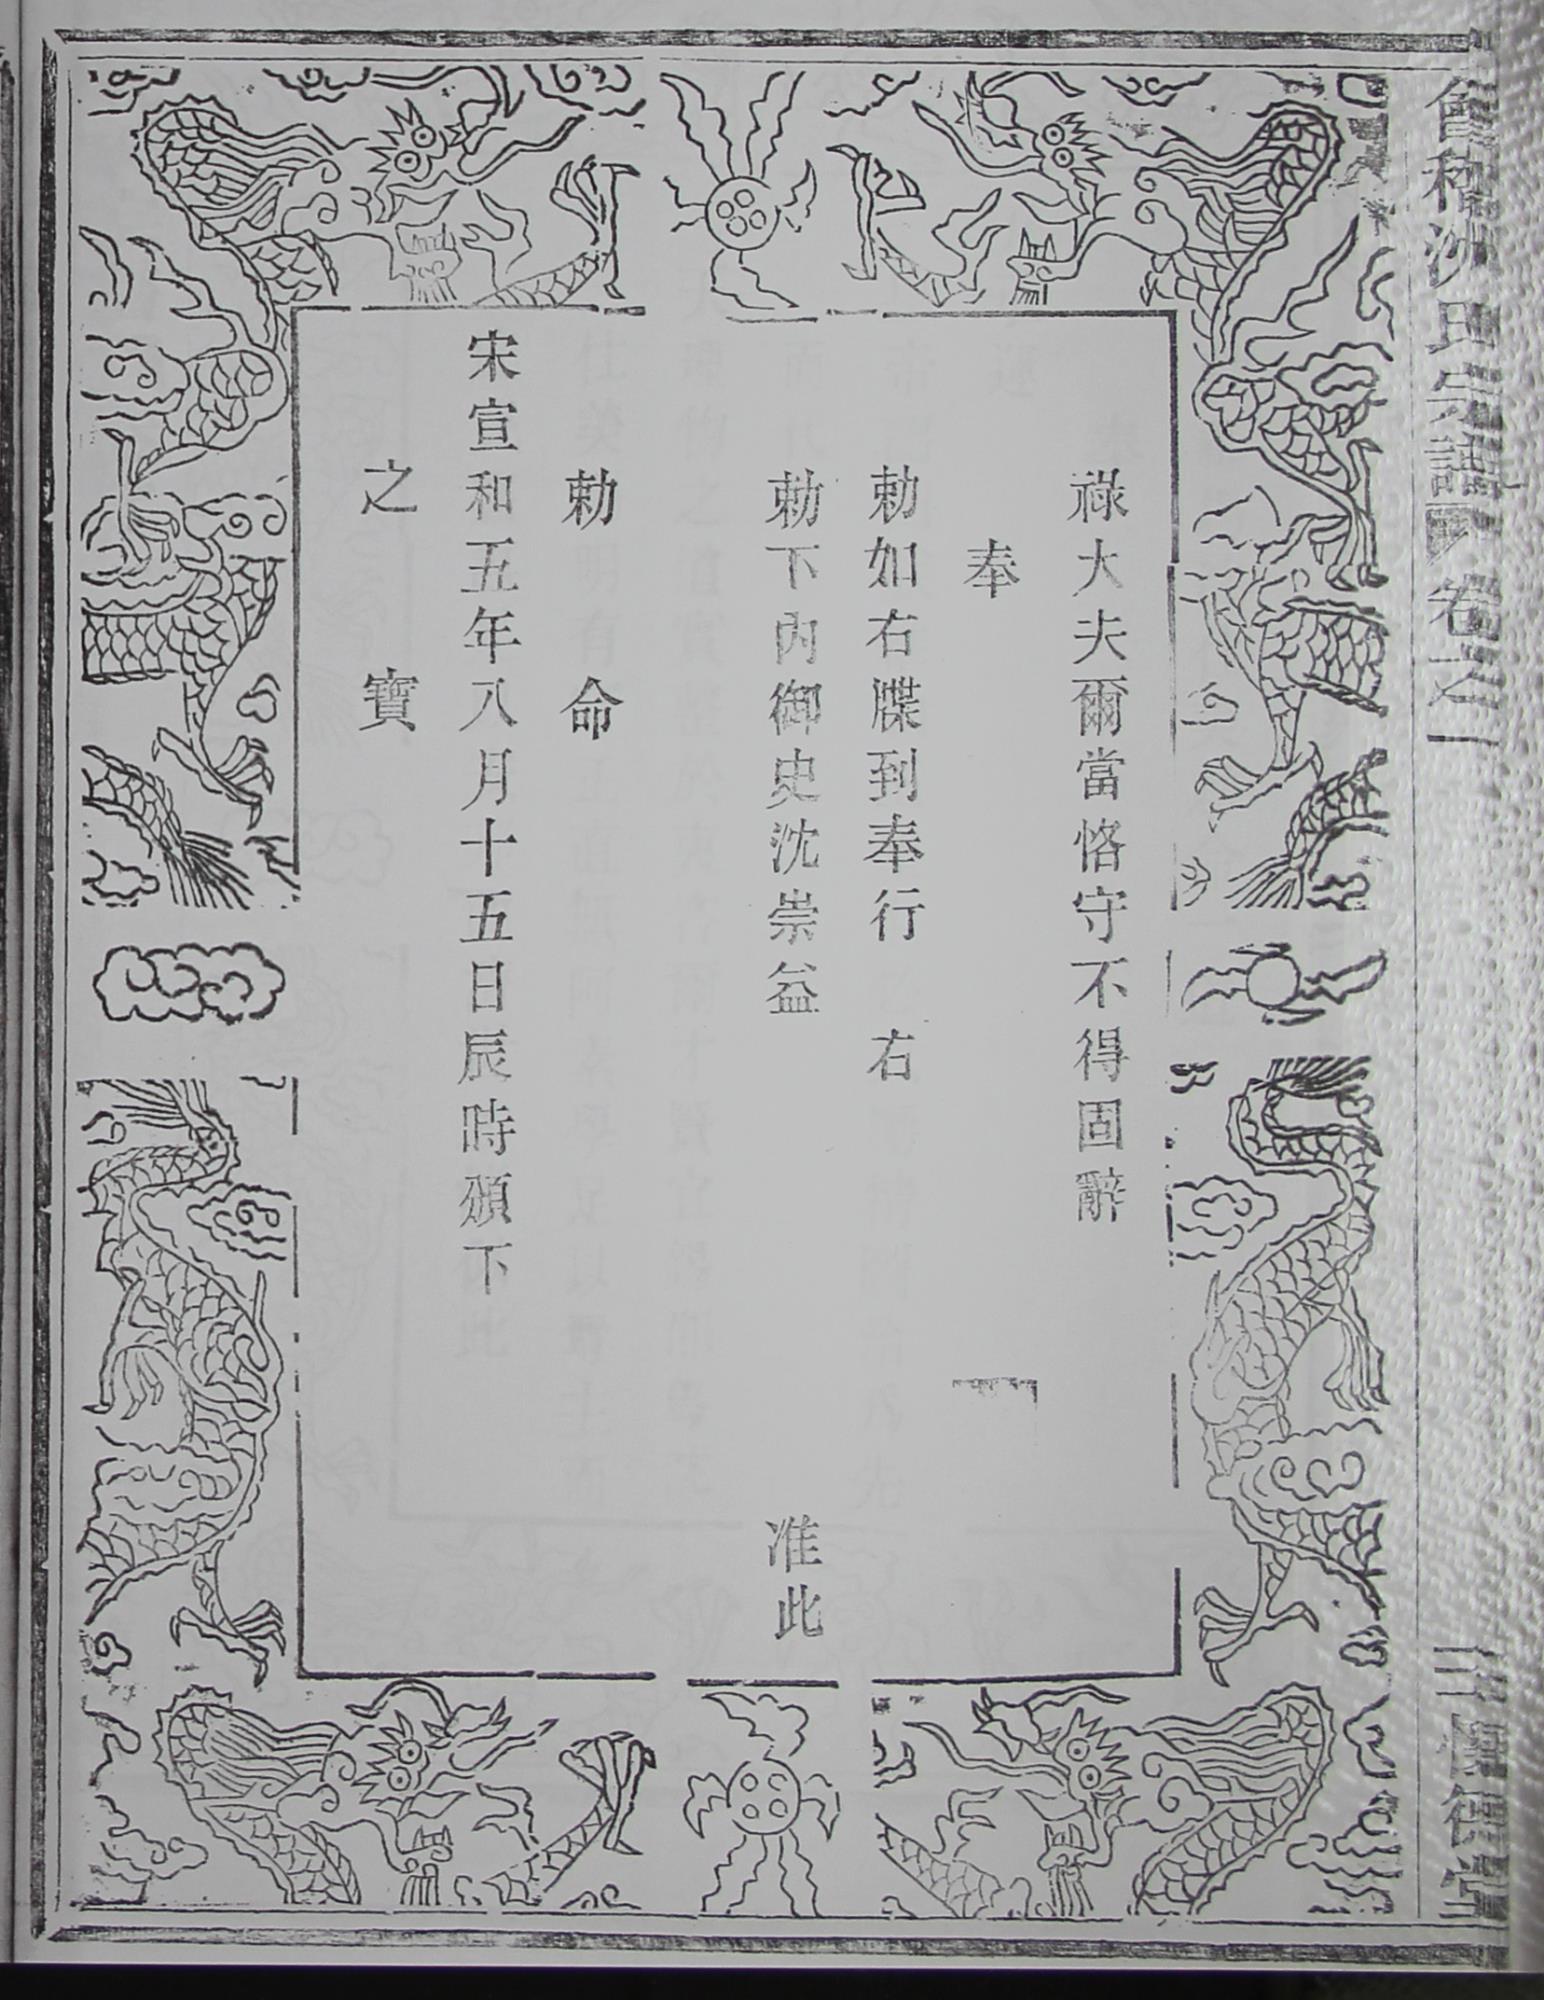 祿大夫爾當恪守不得固辭
奉
勅如右牒到奉行 右
勅下內御史沈崇益 准此
勅命
宋宣和五年八月十五日辰時頒下
之寶
沈氏宗譜 卷之一